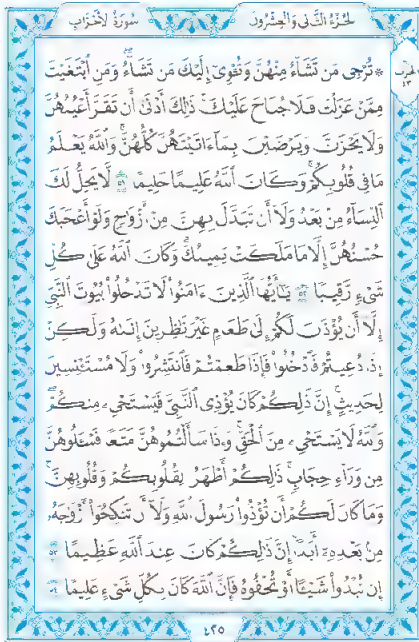 الجزء الثاني والعشرون سورة الأحزاب
* تُرْجِى مَن تَشَآءُ مِنْهُنَّ وَتُـْٔوِىٓ إِلَيْكَ مَن تَشَآءُ وَمَنِ ٱبْتَغَيْتَ
مِمَّنْ عَزَلْتَ فَلَا جُنَاحَ عَلَيْكَ ذَٰلِكَ أَدْنَىٰٓ أَن تَقَرَّ أَعْيُنُهُنَّ
وَلَا يَحْزَنَّ وَيَرْضَيْنَ بِمَآ ءَاتَيْتَهُنَّ كُلُّهُنَّ وَٱللَّهُ يَعْلَمُ
مَا فِى قُلُوبِكُمْ وَكَانَ ٱللَّهُ عَلِيمًا حَلِيمًا ٥١ لَّا يَحِلُّ لَكَ
ٱلنِّسَآءُ مِنۢ بَعْدُ وَلَآ أَن تَبَدَّلَ بِهِنَّ مِنْ أَزْوَٰجٍ وَلَوْ أَعْجَبَكَ
حُسْنُهُنَّ إِلَّا مَا مَلَكَتْ يَمِينُكَ وَكَانَ ٱللَّهُ عَلَىٰ كُلِّ
شَىْءٍ رَّقِيبًا ٥٢ يَٰٓأَيُّهَا ٱلَّذِينَ ءَامَنُوا۟ لَا تَدْخُلُوا۟ بُيُوتَ ٱلنَّبِىِّ
إِلَّآ أَن يُؤْذَنَ لَكُمْ إِلَىٰ طَعَامٍ غَيْرَ نَٰظِرِينَ إِنَىٰهُ وَلَٰكِنْ
إِذَا دُعِيتُمْ فَٱدْخُلُوا۟ فَإِذَا طَعِمْتُمْ فَٱنتَشِرُوا۟ وَلَا مُسْتَـْٔنِسِينَ
لِحَدِيثٍ إِنَّ ذَٰلِكُمْ كَانَ يُؤْذِى ٱلنَّبِىَّ فَيَسْتَحْىِۦ مِنكُمْ
وَٱللَّهُ لَا يَسْتَحْىِۦ مِنَ ٱلْحَقِّ وَإِذَا سَأَلْتُمُوهُنَّ مَتَٰعًا فَسْـَٔلُوهُنَّ
مِن وَرَآءِ حِجَابٍ ذَٰلِكُمْ أَطْهَرُ لِقُلُوبِكُمْ وَقُلُوبِهِنَّ
وَمَا كَانَ لَكُمْ أَن تُؤْذُوا۟ رَسُولَ ٱللَّهِ وَلَآ أَن تَنكِحُوٓا۟ أَزْوَٰجَهُۥ
مِنۢ بَعْدِهِۦٓ أَبَدًا إِنَّ ذَٰلِكُمْ كَانَ عِندَ ٱللَّهِ عَظِيمًا ٥٣
إِن تُبْدُوا۟ شَيْـًٔا أَوْ تُخْفُوهُ فَإِنَّ ٱللَّهَ كَانَ بِكُلِّ شَىْءٍ عَلِيمًا ٥٤
٤٢٥